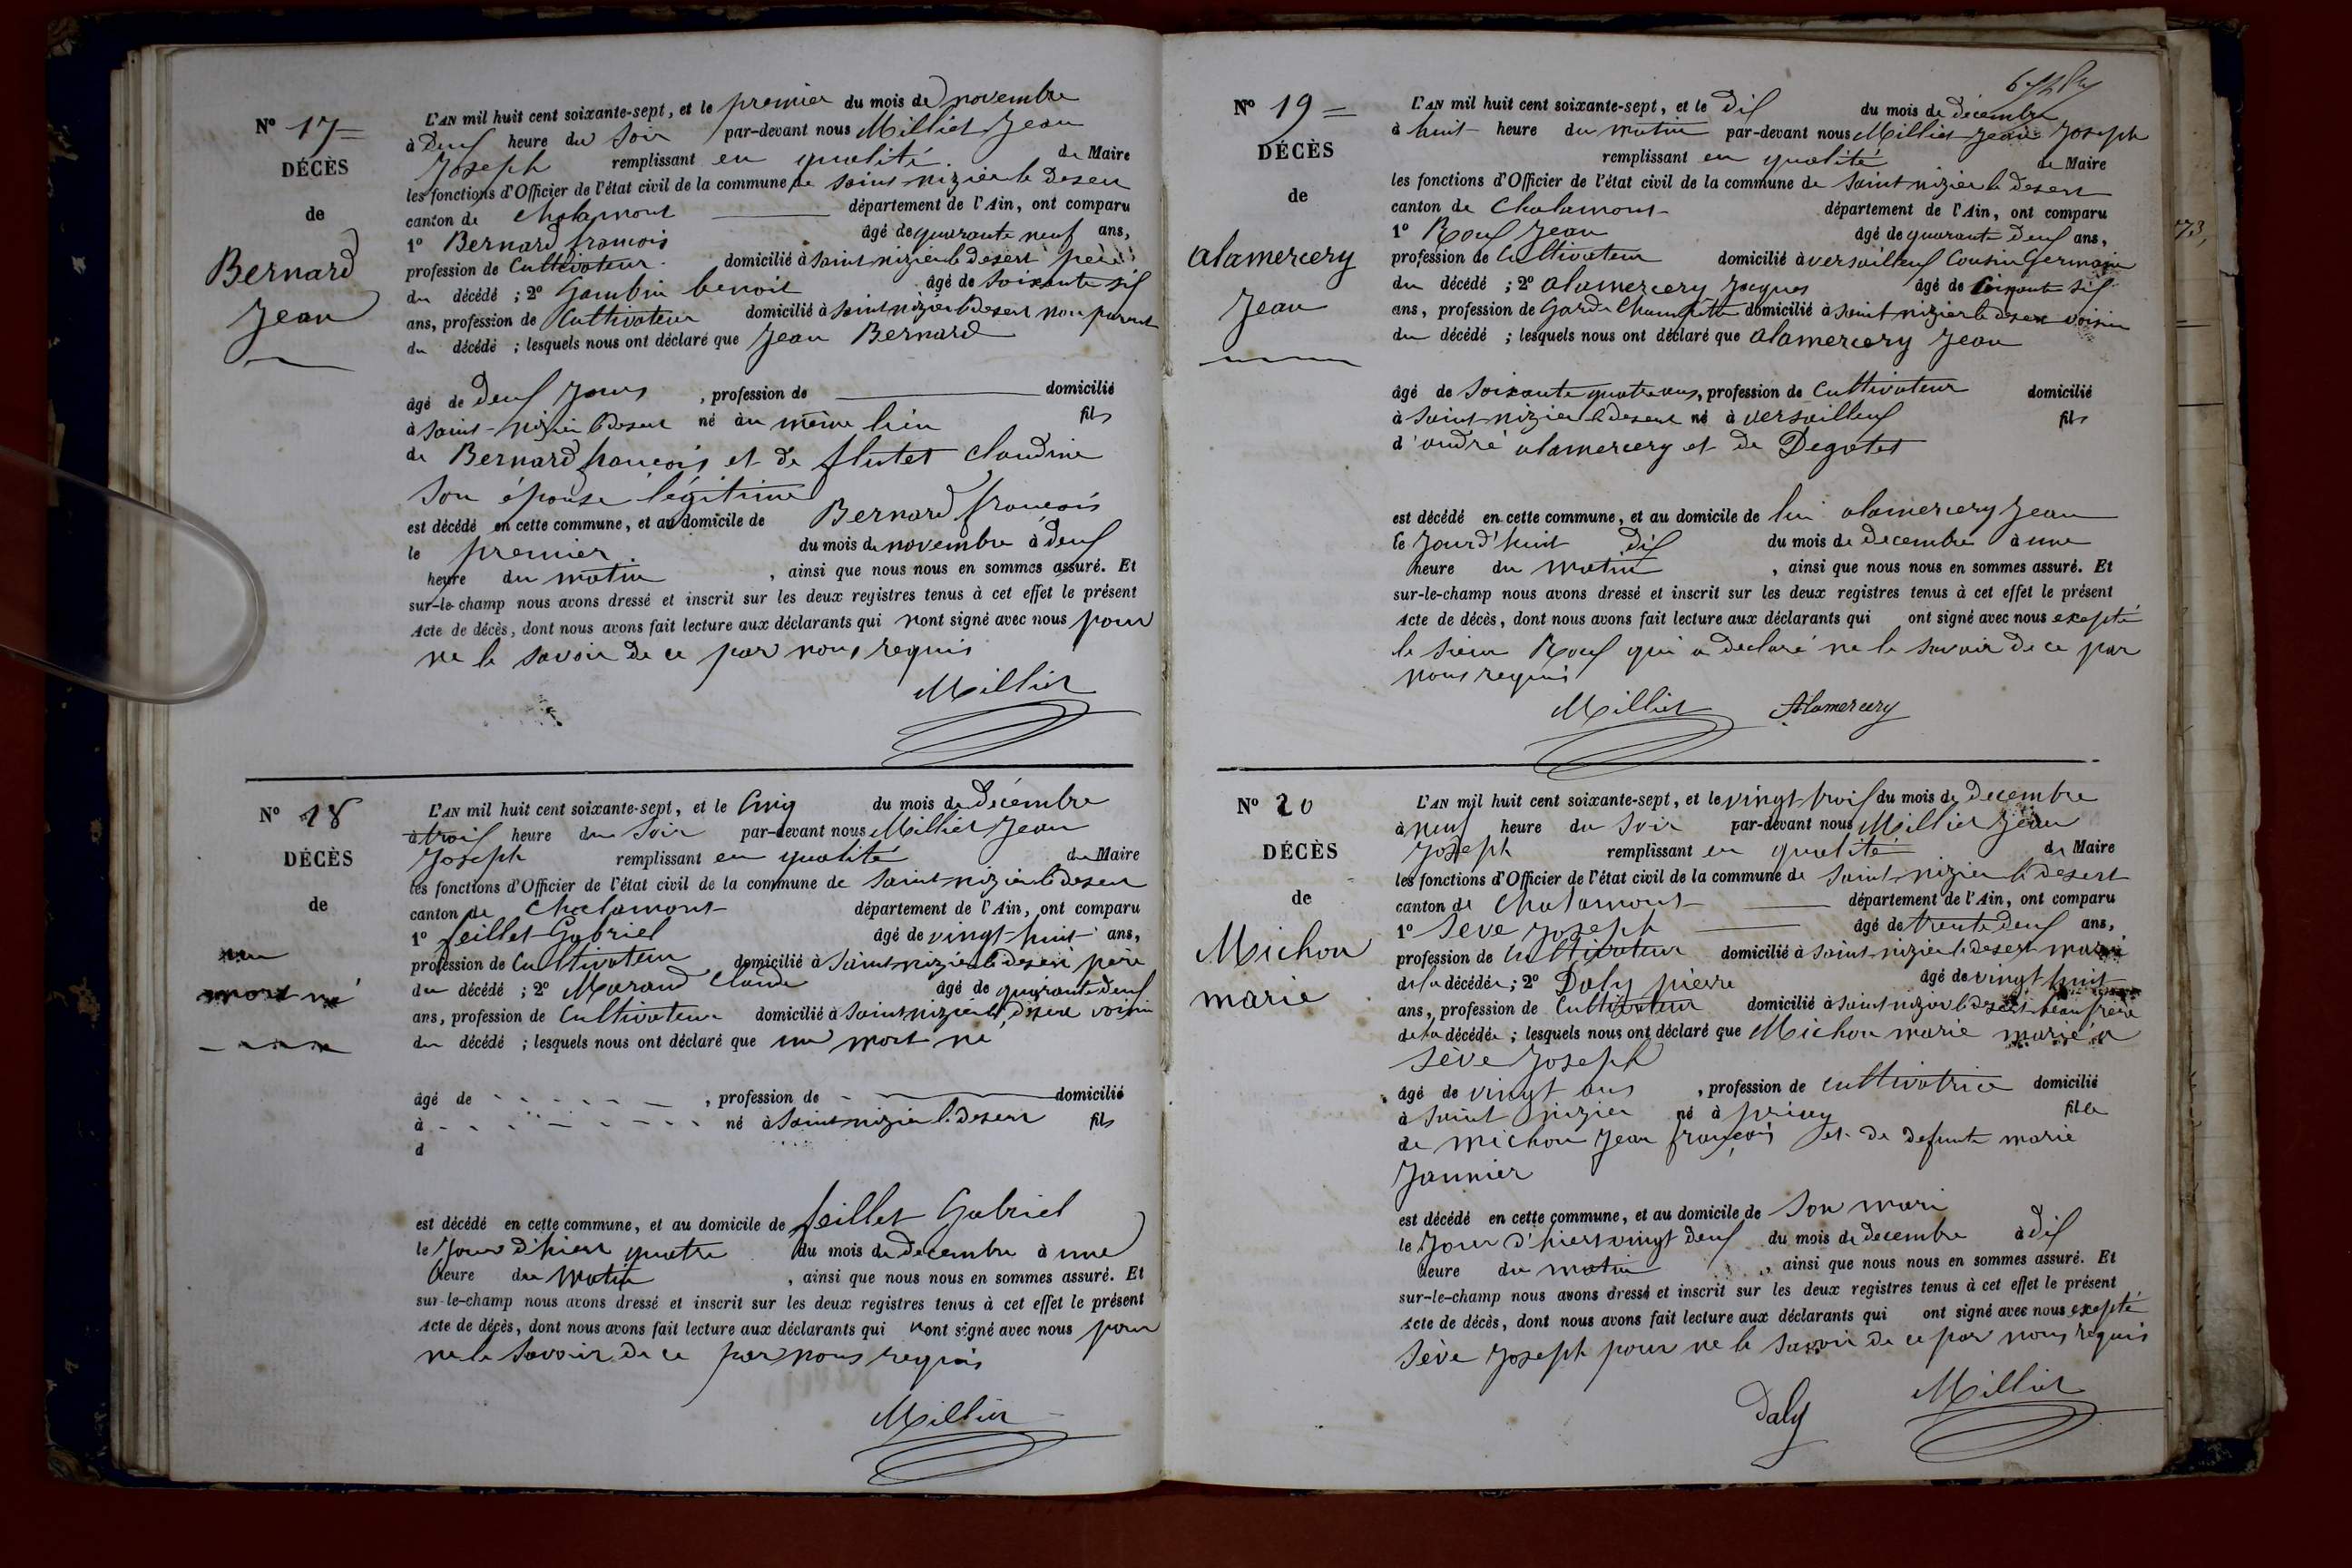 Nº 17 =
DÉCÈS
de
Bernard
Jean
L'AN mil huit cent soixante-sept, et le premier du mois de novembre
à Deux heure du Soir par-devant nous Milliet Jean
Joseph remplissant en qualité de Maire
les fonctions d'Officier de l'état civil de la commune de saint nizier le Desert
canton de Chalamont département de l'Ain, ont comparu
1º Bernard francois âgé de quarante neuf ans,
profession de Cultivateur domicilié à saint nizier le desert père
du décédé ; 2º Gambin benoit âgé de soixante six
ans, profession de Cultivateur domicilié à saint nizier le desert non parent
du décédé ; lesquels nous ont déclaré que Jean Bernard
âgé de deux Jours , profession de domicilié
à saint-nizier le Desert né au même lieu fils
de Bernard francois et de flutet claudine
son épouse légitime
est décédé en cette commune, et au domicile de Bernard francois
le premier du mois de novembre à deux
heure du matin , ainsi que nous nous en sommes assuré. Et
sur-le-champ nous avons dressé et inscrit sur les deux registres tenus à cet effet le présent
Acte de décès, dont nous avons fait lecture aux déclarants qui n'ont signé avec nous pour
ne le savoir de ce par nous requis
Milliet
Nº 18
DÉCÈS
de
un
mort né
L'AN mil huit cent soixante-sept, et le Cinq du mois de Décembre
à trois heure du Soir par-devant nous Milliet Jean
Joseph remplissant en qualité de Maire
les fonctions d'Officier de l'état civil de la commune de saint-nizier le desert
canton de Chalamont département de l'Ain, ont comparu
1º feillet Gabriel âgé de vingt-huit ans,
profession de Cultivateur domicilié à saint-nizier le desert père
du décédé ; 2º Marand Claude âgé de quarante deux
ans, profession de Cultivateur domicilié à saint nizier le desert voisin
du décédé ; lesquels nous ont déclaré que un mort né
âgé de , profession de domicilié
à né à saint-nizier le desert fils
d
est décédé en cette commune, et au domicile de feillet Gabriel
le Jour d'hier quatre du mois de decembre à une
heure du matin , ainsi que nous nous en sommes assuré. Et
sur-le-champ nous avons dressé et inscrit sur les deux registres tenus à cet effet le présent
Acte de décès, dont nous avons fait lecture aux déclarants qui n'ont signé avec nous pour
ne le savoir de ce par nous requis
Milliet
Nº 19 =
DÉCÈS
de
alamercery
Jean
L'AN mil huit cent soixante-sept, et le Dix du mois de décembre
à huit heure du matin par-devant nous Milliet Jean Joseph
remplissant en qualité de Maire
les fonctions d'Officier de l'état civil de la commune de saint nizier le desert
canton de Chalamont département de l'Ain, ont comparu
1º Roux Jean âgé de quarante deux ans,
profession de Cultivateur domicilié à versailleux Cousin Germain
du décédé ; 2º alamercery Jacques âgé de six
ans, profession de Garde Champêtre domicilié à saint nizier le desert voisin
du décédé ; lesquels nous ont déclaré que alamercery Jean
âgé de soixante quatre ans, profession de Cultivateur domicilié
à saint-nizier le desert né à versailleux fils
d'andré alamercery et de Degotet
est décédé en cette commune, et au domicile de lui alamercery Jean
le Jourd'huit Dix du mois de decembre à une
heure du matin , ainsi que nous nous en sommes assuré. Et
sur-le-champ nous avons dressé et inscrit sur les deux registres tenus à cet effet le présent
Acte de décès, dont nous avons fait lecture aux déclarants qui ont signé avec nous exepté
le sieur Roux qui a declaré ne le savoir de ce par
nous requis
Milliet Alamercery
73,
Nº 20
DÉCÈS
de
Michon
marie
L'AN mil huit cent soixante-sept, et le vingt-trois du mois de decembre
à neuf heure du Soir par-devant nous Milliet Jean
Joseph remplissant en qualité de Maire
les fonctions d'Officier de l'état civil de la commune de saint-nizier le desert
canton de Chalamont département de l'Ain, ont comparu
1º Seve Joseph âgé de trente deux ans,
profession de Cultivateur domicilié à saint-nizier le desert mari
de la décédée ; 2º Daly pierre âgé de vingt huit
ans, profession de Cultivateur domicilié à saint nizier le desert beau frère
de la décédée ; lesquels nous ont déclaré que Michon marie marié a
Sève Joseph
âgé de vingt ans , profession de cultivatrice domicilié
à saint nizier né à priay fille
de michon Jean françois et de defunte marie
Jannier
est décédé en cette commune, et au domicile de son mari
le Jour d'hier vingt deux du mois de decembre à dix
heure du matin , ainsi que nous nous en sommes assuré. Et
sur-le-champ nous avons dressé et inscrit sur les deux registres tenus à cet effet le présent
Acte de décès, dont nous avons fait lecture aux déclarants qui ont signé avec nous exepté
Sève Joseph pour ne le savoir de ce par nous requis
Daly Milliet